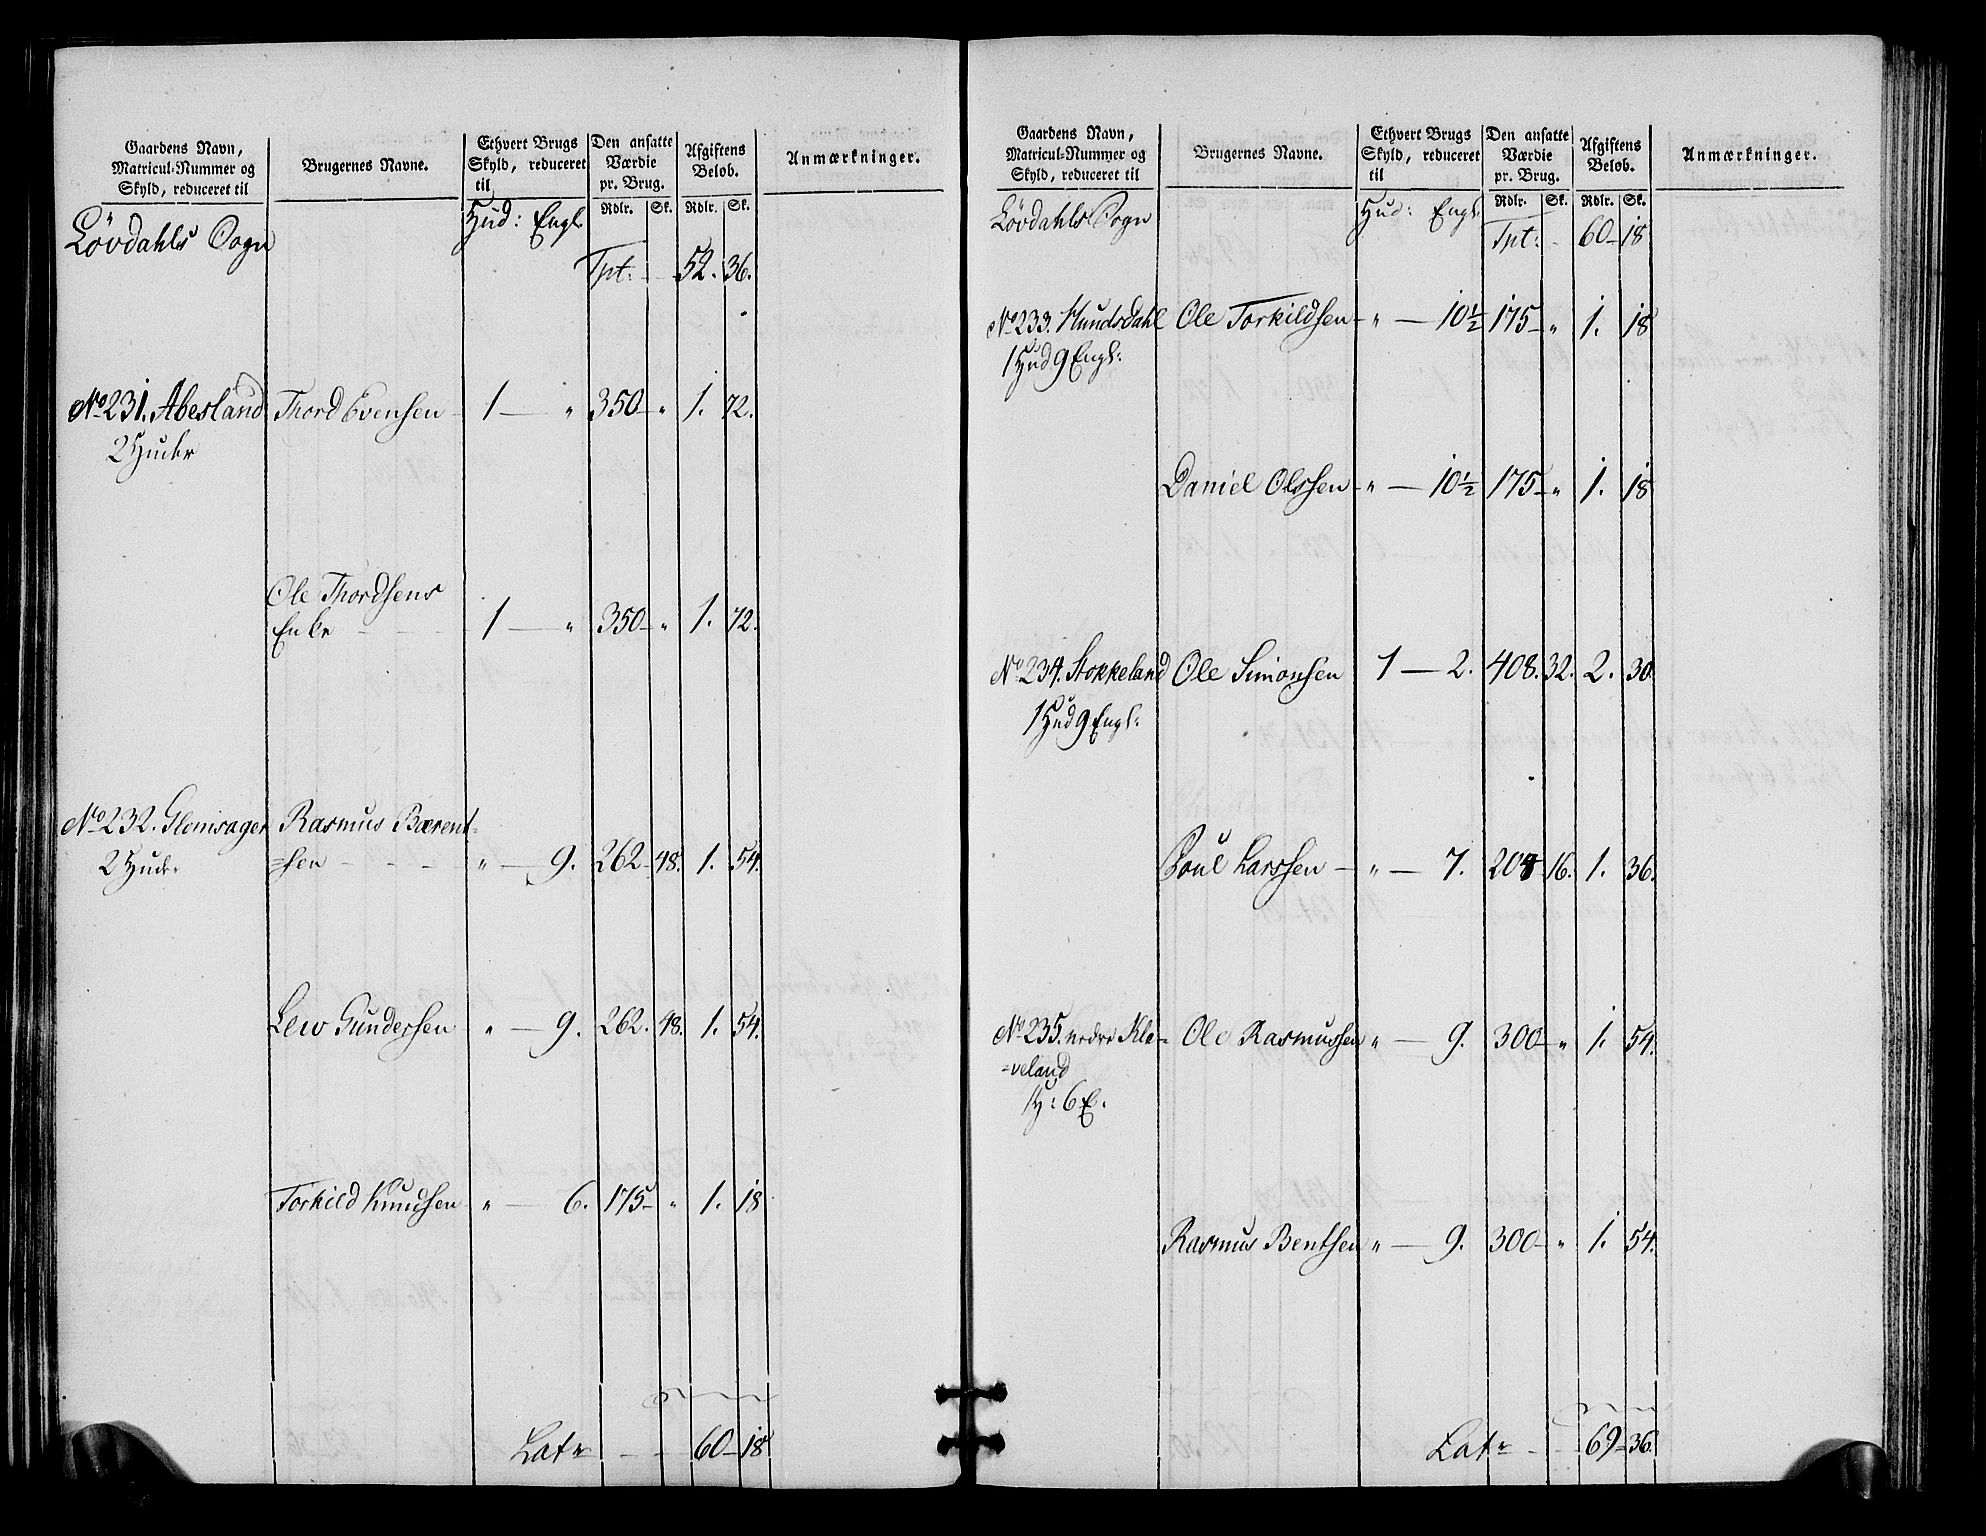 Gaardens Navn, Matricul-Nummer og Skyld, reduceret til | Brugernes Navne. | Ethvert Brugs Skyld, reduceret til | Den ansatte Værdie pr. Brug. | Afgiftens Beløb. | Anmærkninger.
Lövdahls Sogn | Hud: Engl. | Rdlr. Sk. | Rdlr. Sk.
Tpt: 52. 36.
No 231. Abesland Thord Evensen 1 — " 350 — " 1. 72.
2 Huder
Ole Thordsens
Enke 1 — " 350 — " 1. 72.
No 232. Glomsager Rasmus Bærent-
2 Huder =sen " — 9. 262 48. 1. 54.
Lew Gundersen " — 9. 262. 48. 1. 54.
Torkild Knudsen " — 6. 175 — " 1. 18
Latr 60 — 18
Gaardens Navn, Matricul-Nummer og Skyld, reduceret til | Brugernes Navne. | Ethvert Brugs Skyld, reduceret til | Den ansatte Værdie pr. Brug. | Afgiftens Beløb. | Anmærkninger.
Lövdahls Sogn | Hud: Engl. | Rdlr. Sk. | Rdlr. Sk.
Tpt: 60 — 18
No 233. Hundsdahl Ole Torkildsen — " — 10½ 175 — " 1. 18
1 Hud 9 Engl:
Daniel Olssen — " — 10½ 175 — " 1. 18
No 234. Stokkeland Ole Simonsen 1 — 2. 408. 32. 2. 30.
1 Hud 9 Engl:
Poul Larssen — " — 7. 204 16. 1. 36.
No 235. nedre Kle= Ole Rasmussen " — 9. 300 — " 1. 54.
=veland
1 H: 6 E.
Rasmus Bentsen " — 9. 300 — " 1. 54.
Latr 69 — 36.